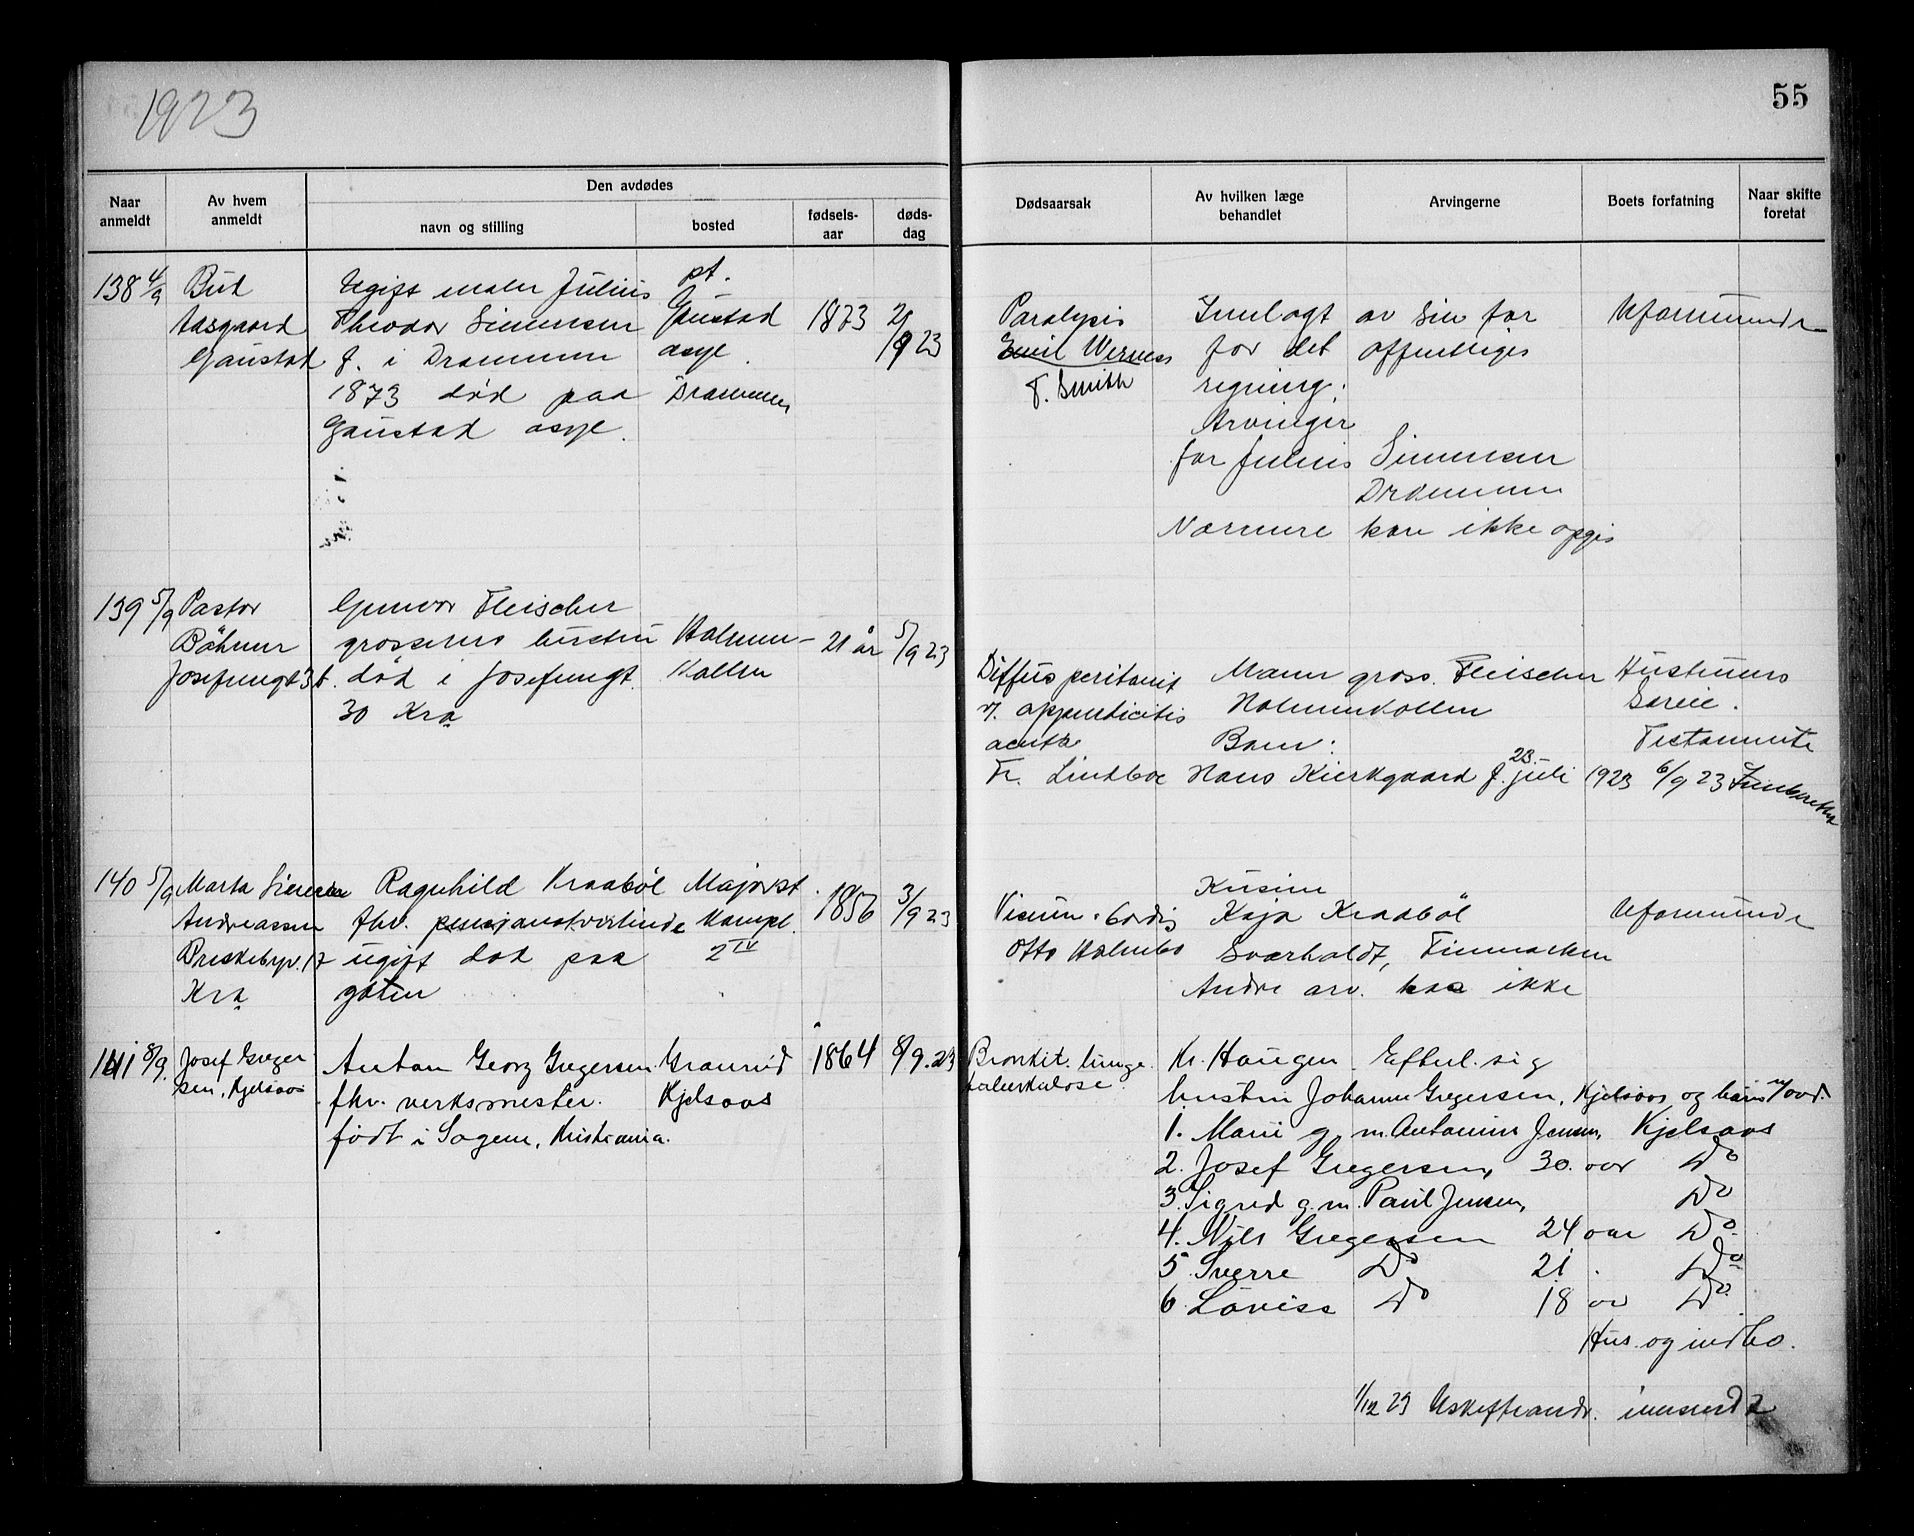 1923
55
Naar anmeldt
Av hvem anmeldt
Den avdødes
navn og stilling
bosted
fødsels-aar
døds-dag
Dødsaarsak
Av hvilken læge behandlet
Arvingerne
Boets forfatning
Naar skifte foretat
138 4/9
Bud
Aasgaard
Gaustad
Ugift maler Julius
Theodor Simensen
f. i Drammen
1873 død paa
Gaustad asyl.
pt.
Gaustad
asyl.
Drammen
1873
2/9 23
Paralysis
Emil Werness
T. Smith
Innlagt av sin far
for det offentliges
regning.
Arvinger
for Julius Simensen
Drammen
Nærmere kan ikke opgis
Uformuende
139 5/9
Pastor
Bøhmer
Josefinegt 3 b.
Gunvor Fleischer
grosserers hustru
død i Josefinegt.
30 Kra
Holmen-
kollen
21 år
5/9 23
Diffus peritonit
v. appendicitis
acuta
Fr. Lindboe
Mann gross. Fleischer
Holmenkollen
Barn:
Hans Kierkgaard f. 23. juli 1923
Hustruens
særeie.
Testamente
6/9 23
140 5/9
Marta Simensen
Andreassen
Preskebyv. 17
Kra
Ragnhild Kraabøl
fhv. pensjonatvertinde
ugift død paa
gaten
Majorst.
Kompl.
2 IV
1856
3/9 23
Vicium cordis
Otto Holmbo
Kusine
Kaja Kraabøl
Sværholdt, Finmarken
Andre arv. has ikke
Uformuende
141 8/9.
Josef Greger
sen, Kjelsaas
Anton Georg Gregersen
fhv. verksmester.
født i Sagene, Kristiania.
Granrud
Kjelsaas
1864
8/9. 23
Bronkit. lunge
tuberkulose.
Kr. Haugen. Efterl. sig
hustru Johanne Gregersen, Kjelsaas og barn
1. Marie g. m. Antonius Jensen, Kjelsaas
2. Josef Gregersen, 30 aar Do
3. Sigrid g. m. Paul Jensen, Do
4. Nils Gregersen 24 aar Do
5 Sverre Do 21 . Do
6 Lovise Do 18 aar Do
Hus og indbo.
1/12 23 Uskifteandr. innsendt